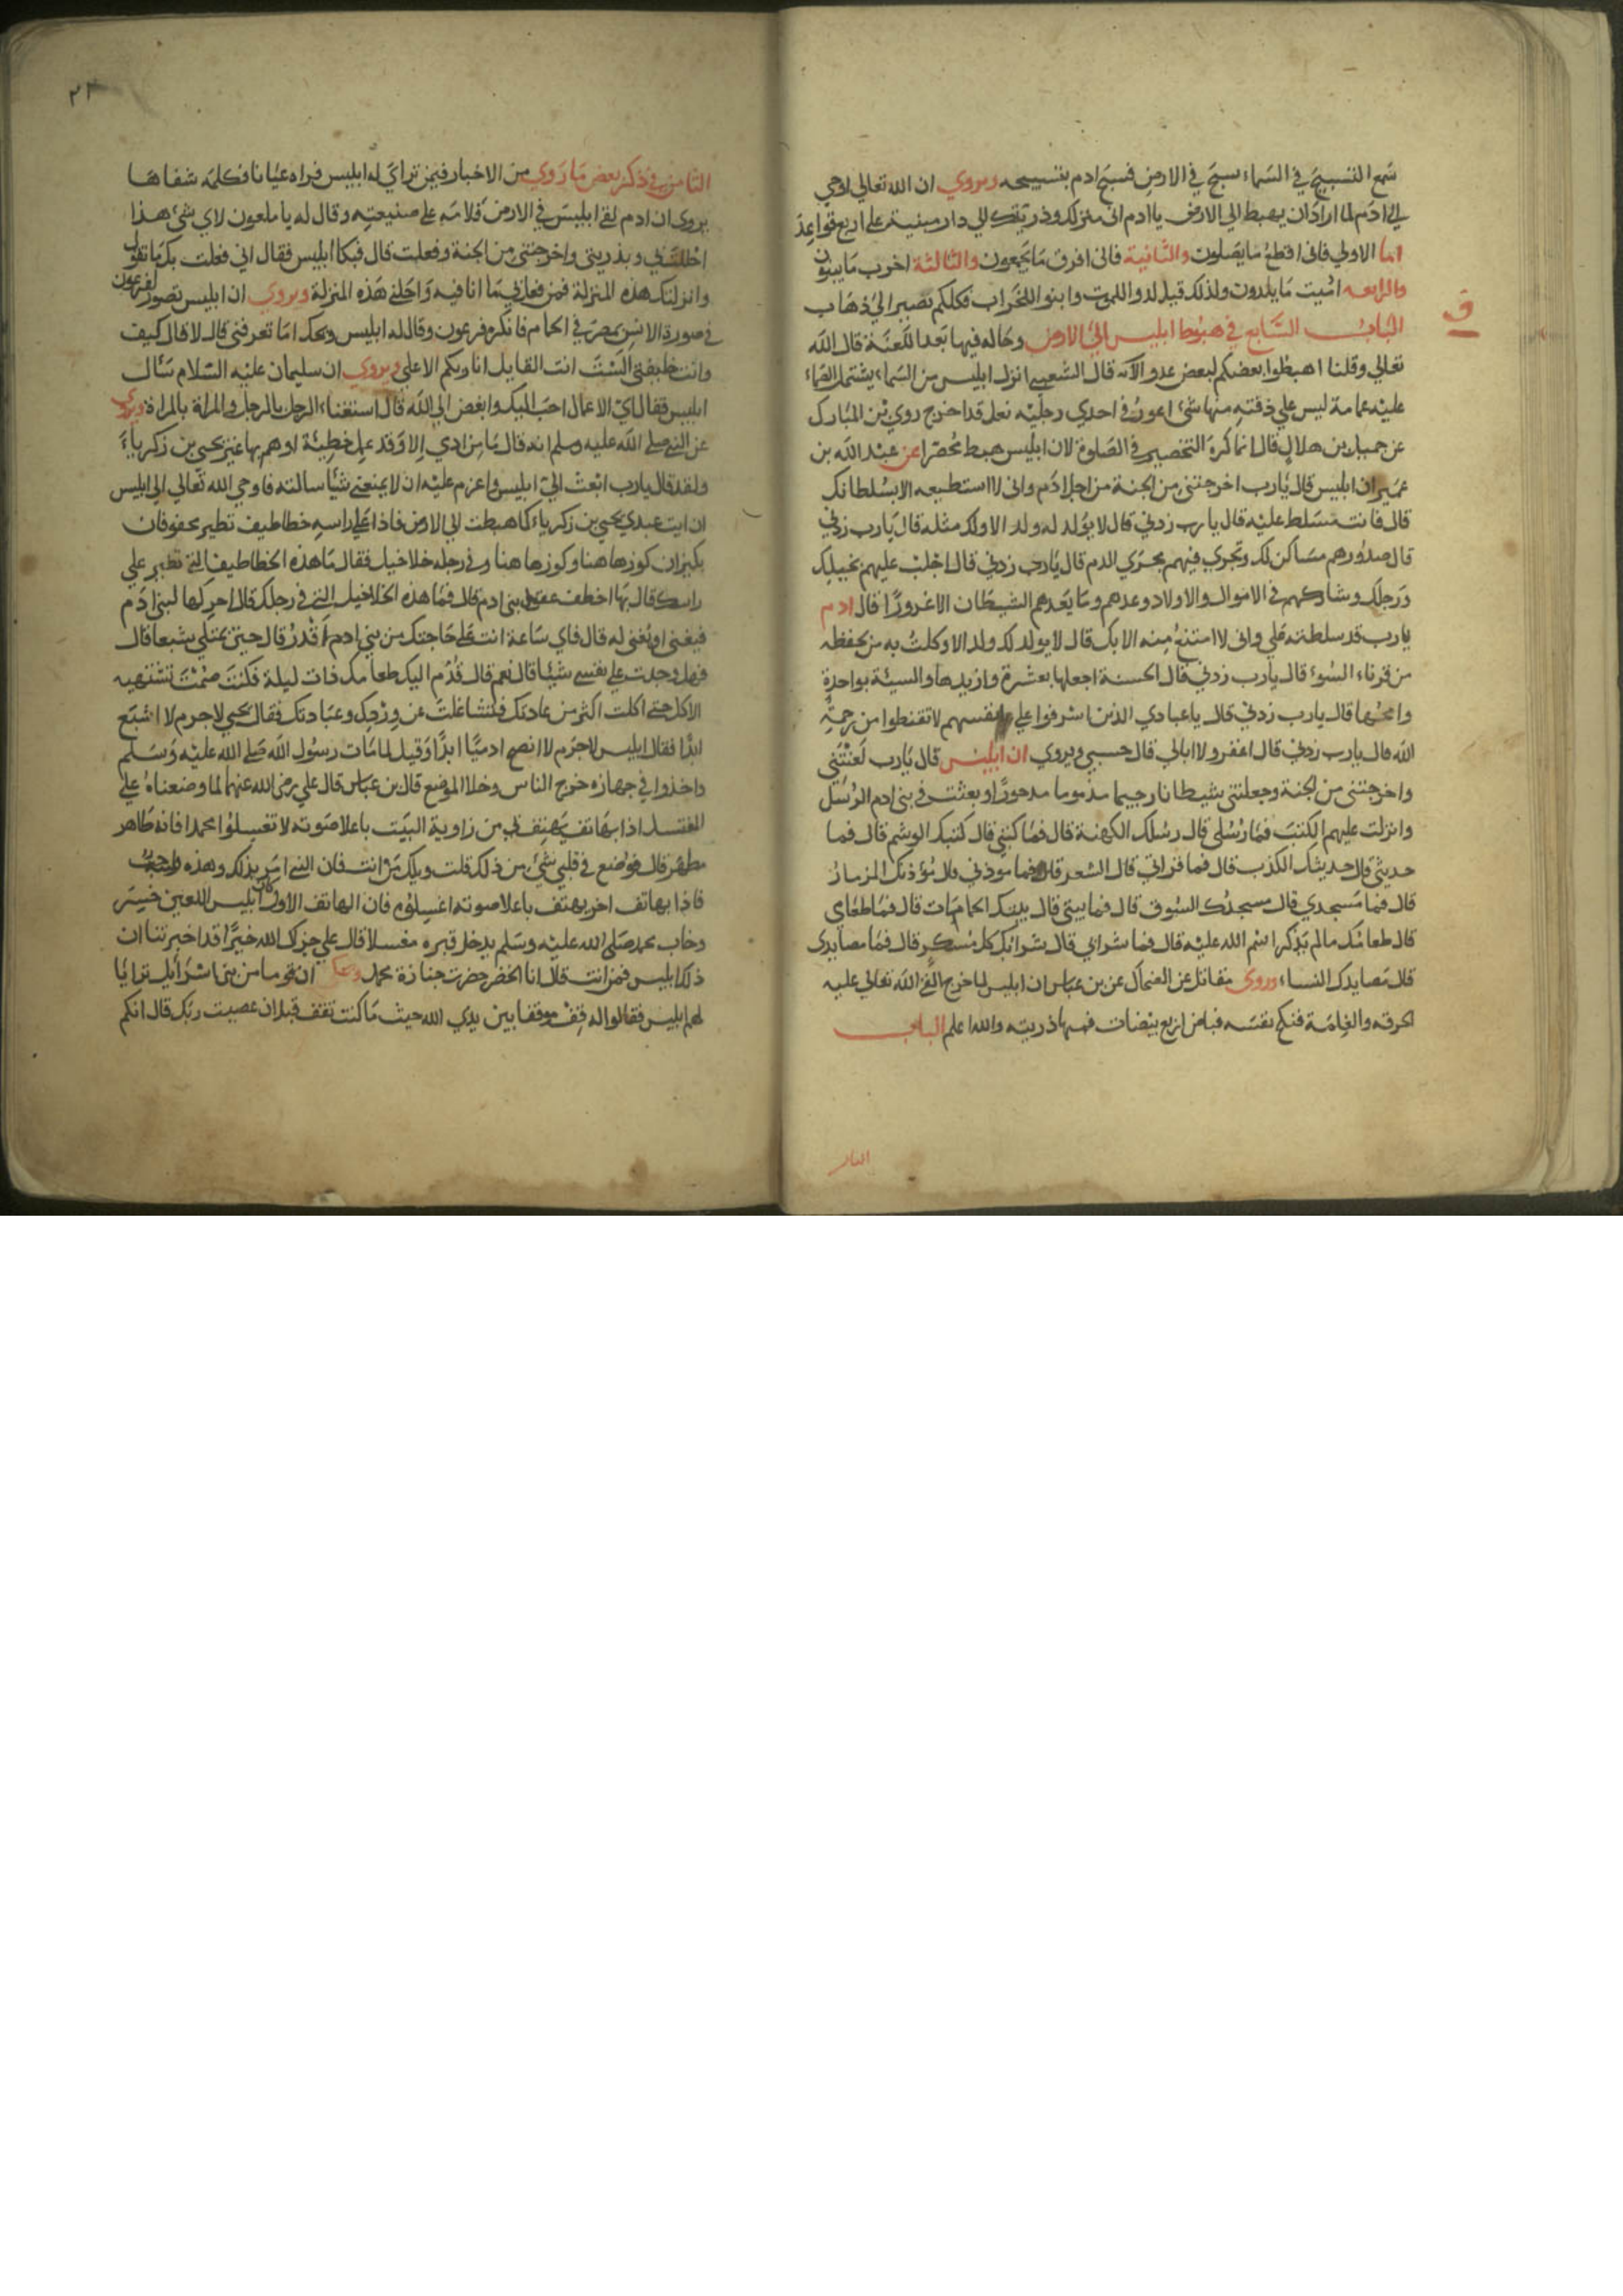 سمع التسبيح في السماء سبح في الارض فسبح ادم بتسبيحه ويروي ان الله تعالي اوحي
الي ادم لما اراد ان يهبط الي الارض يا ادم اني منزلك وذريتك الي دار مبنية علي اربع قواعد
اما الاولي فاني اقطع ما يصلون والثانية فاني افرق ما يجمعون والثالثة اخرب ما يبنون
والرابعه اميت ما يلدون ولذلك قيل لدوا للموت وابنوا للخراب فكلكم تصير الي ذهاب
ف
الباب السابع في هبوط ابليس الي الارض وحاله فيها بعد اللعنة قال الله
تعالي وقلنا اهبطوا بعضكم لبعض عدو الآيه قال الشعبي انزل ابليس من السماء يشتمل الصماء
عليه عمامة ليس علي ذقنه منها شئ اعور في احدي رجليه نعل قد اخرج روي بن المبارك
عن حميد بن هلال قال انما كره التخصير في الصلوة لان ابليس هبط مختصرا عن عبد الله بن
عمير ان ابليس قال يارب اخرجتني من الجنة من اجل ادم واني لا استطيعه الا بسلطانك
قال فانت مسلط عليه قال يا رب زدني قال لا يولد له ولد الا ولك مثله قال يارب زدني
قال صدورهم مساكن لك وتجري فيهم مجري الدم قال يارب زدني قال اجلب عليهم بخيلك
ورجلك وشاركهم في الاموال والاولاد وعدهم وما يعدهم الشيطان الا غرورا قال ادم
يارب قد سلطته علي واني لا امتنع منه الا بك قال لا يولد لك ولد الا وكلت به من يحفظه
من قرناء السوء قال يارب زدني قال الحسنة اجعلها بعشرة وازيدها والسيئة بواحدة
وامحها قال يارب زدني قال يا عبادي الذين اسرفوا علي انفسهم لا تقنطوا من رحمة
الله قال يارب زدني قال اغفر ولا ابالي قال حسبي ويروي ان ابليس قال يارب لعنتني
واخرجتني من الجنة وجعلتني شيطانا رجيما مذموما مدحورا وبعثت في بني ادم الرسل
وانزلت عليهم الكتب فما رسلي قال رسلك الكهنة قال فما كتبي قال كتبك الوشم قال فما
حديثي قال حديثك الكذب قال فما قراني قال الشعر قال فما موذني قال مؤذنك المزمار
قال فما مسجدي قال مسجدك السوق قال فما بيتي قال بيتك الحمامات قال فما طعامي
قال طعامك مالم يذكر اسم الله عليه قال فما شرابي قال شرابك كل مسكر قال فما مصايدي
قال مصايدك النساء وروي مقاتل عن الضحاك عن بن عباس ان ابليس لما خرج القي الله تعالي عليه
الحرقه والغلمة فنكح نفسه فباض اربع بيضات فمنها ذريته والله اعلم الباب
٢١
الثامن في ذكر بعض ما روي من الاخبار فيمن تراي له ابليس فراه عيانا فكلمه شفاها
يروي ان ادم لقي ابليس في الارض فلامه علي صنيعته وقال له يا ملعون لاي شئ هذا
وبذريتي واخرجتني من الجنة وفعلت قال فبكا ابليس فقال اني فعلت بك ما تقول
وانزلتك هذه المنزلة فمن فعل بي ما انا فيه واحلني هذه المنزلة ويروي ان ابليس تصور لفرعون
في صورة الانس بمصر في الحمام فانكره فرعون وقال له ابليس ويحك اما تعرفني قال لا قال كيف
وانت خليفتي الست انت القايل انا ربكم الاعلي ويروي ان سليمان عليه السلام سال
ابليس فقال اي الاعمال احب اليك وابغض الي الله قال استغناء الرجل بالرجل والمراة بالمراة ويروي
عن النبي صلي الله عليه وسلم انه قال ما من ادمي الا وقد عمل خطيئة او هم بها غير يحيي بن زكرياء
ولقد قال يارب ابعث الي ابليس واعزم عليه ان لا يمنعني شيأ سالته فاوحي الله تعالي الي ابليس
ان ايت عبدي يحيي بن زكرياء كما هبطت الي الارض فاذا علي راسه خطاطيف تطير
بكيزان كوزها هنا وكوزها هنا وفي رجله خلاخيل فقال ما هذه الخطاطيف التي تطير علي
راسك قال بها اخطف عقول بني ادم قال فما هذه الخلاخيل التي في رجلك قال احركها لبني ادم
فيغني او يغني له قال فاي ساعة انت علي حاجتك من بني ادم اقدر قال حين يمتلي شبعا قال
فهل وجدت علي نفسي شيئا قال نعم قال قدم اليك طعامك ذات ليلة فكنت صمت تشتهيه
الاكل حتي اكلت اكثر من عادتك فتشاغلت عن وردك وعبادتك فقال يحيي لا جرم لا اشبع
ابدا فقال ابليس لا جرم لا انصح ادميا ابدا وقيل لما مات رسول الله صلي الله عليه وسلم
واخذوا في جهازه خرج الناس وخلا الموضع قال بن عباس قال علي رضي الله عنهما لما وضعناه علي
المغتسل اذا بهاتف يهتف بي من زاوية البيت باعلا صوته لا تغسلوا محمدا فانه طاهر
مطهر قال فوضع في قلبي شئ من ذلك قلت ويلك من انت فان النبي امر بذلك وهذه
فاذا بهاتف اخر يهتف باعلا صوته اغسلوه فان الهاتف الاول كان ابليس اللعين
وخاب محمد صلي الله عليه وسلم يدخل قبره مغسلا قال علي جزاك الله خيرا قد اخبرتنا ان
ذلك ابليس فمن انت قال انا الخضر حضرت جنازة محمد وحكي ان قوما من بني اسرائيل ترايا
لهم ابليس فقالوا له قف موقفا بين يدي الله حيث ما كنت تقف قبل ان عصيت ربك قال انكم